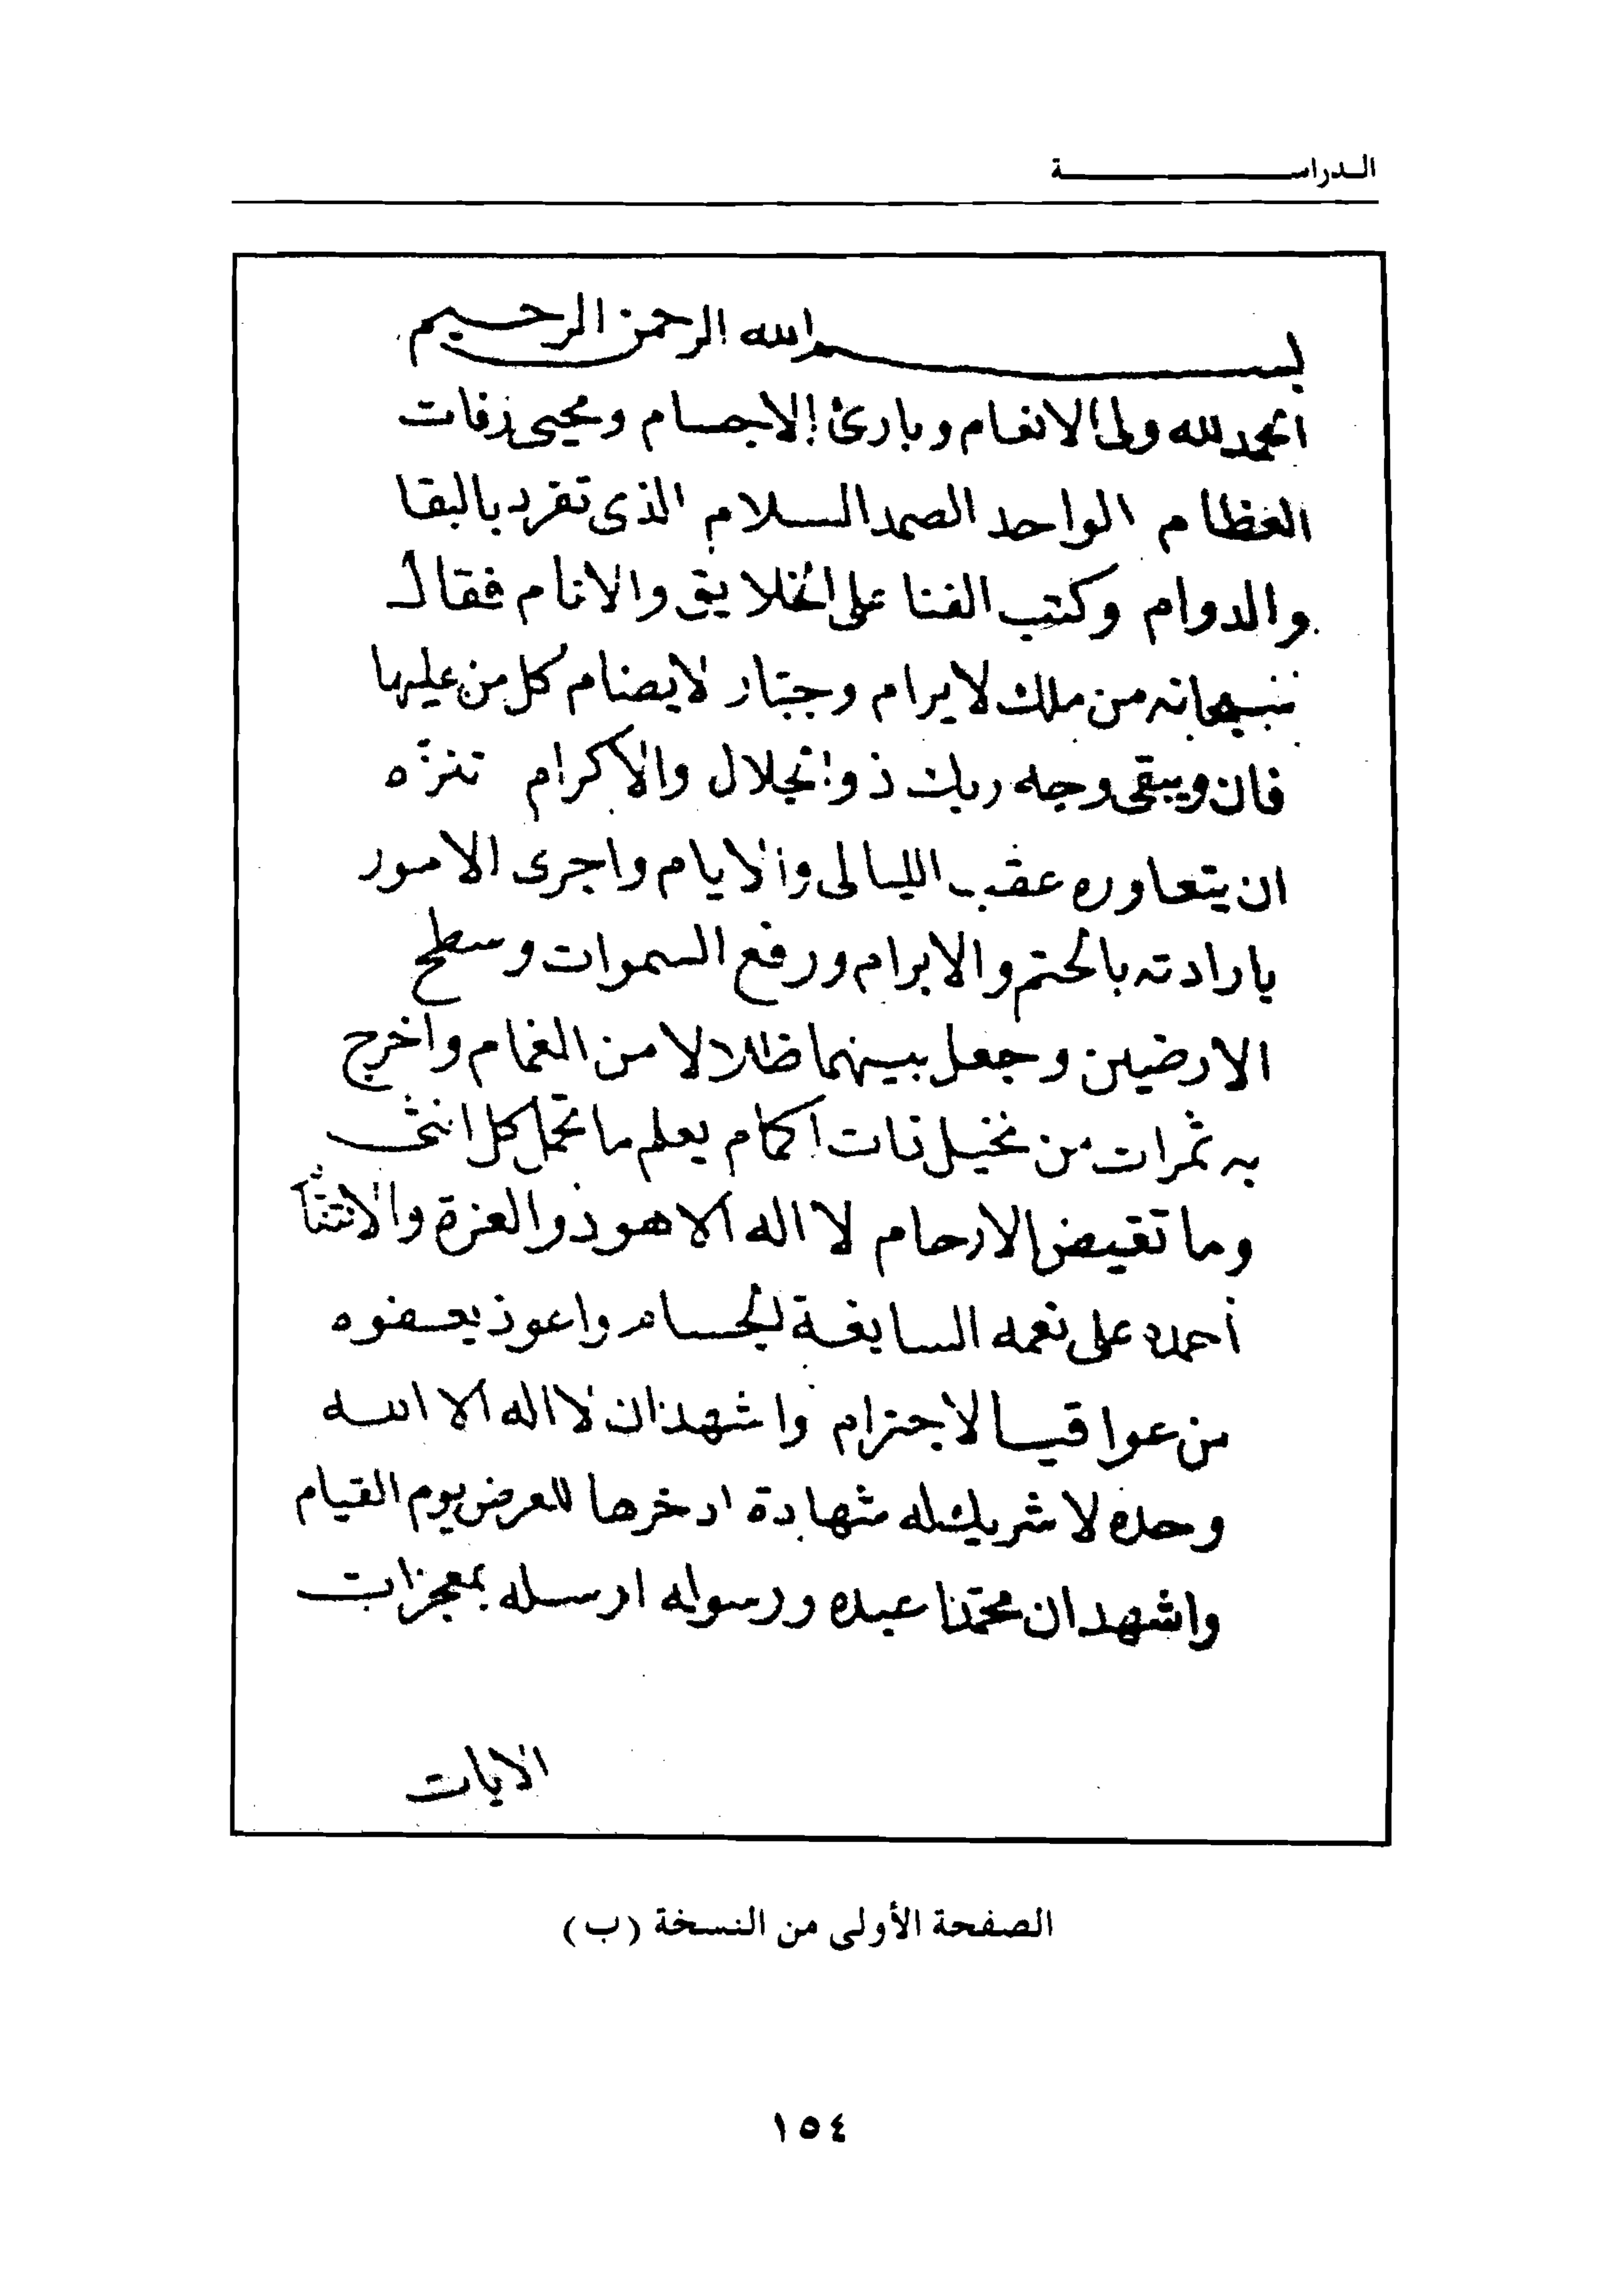 الدراسة
بسم الله الرحمن الرحيم
الحمد لله ولى الانعام وبارئ الاجسام ومحيى رفات
العظام الواحد الصمد السلام الذى تفرد بالبقا
والدوام وكتب الفنا على الخلايق والانام فقال
سبحانه من ملك لا يرام وجبّار لا يضام كل من عليها
فان ويبقى وجه ربك ذو الجلال والاكرام تنزّه
ان يتعاوره عقب الليالى والايام واجرى الامور
بارادته بالحتم والابرام ورفع السموات وسطح
الارضين وجعل بينهما ظلالا من الغمام واخرج
به ثمرات من نخيل ذات اكمام يعلم ما تحمل كل انثى
وما تغيض الارحام لا اله الا هو ذو العزة
أحمده على نعمه السابغة الجسام واعوذ بعفوه
من عواقب الاجترام واشهد ان لا اله الا الله
وحده لا شريك له شهادة ادخرها للعرض يوم القيام
واشهد ان محمّدا عبده ورسوله ارسله بمعجزات
الايات
الصفحة الأولى من النسخة (ب)
١٥٤